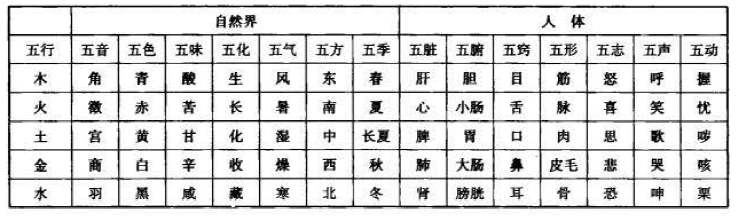 自然界 人 体
五行 五音 五色 五味 五化 五气 五方 五季 五脏 五腑 五窍 五形 五志 五声 五动
木 角 青 酸 生 风 东 春 肝 胆 目 筋 怒 呼 握
火 徵 赤 苦 长 暑 南 夏 心 小肠 舌 脉 喜 笑 忧
土 宫 黄 甘 化 湿 中 长夏 脾 胃 口 肉 思 歌 哕
金 商 白 辛 收 燥 西 秋 肺 大肠 鼻 皮毛 悲 哭 咳
水 羽 黑 咸 藏 寒 北 冬 肾 膀胱 耳 骨 恐 呻 栗